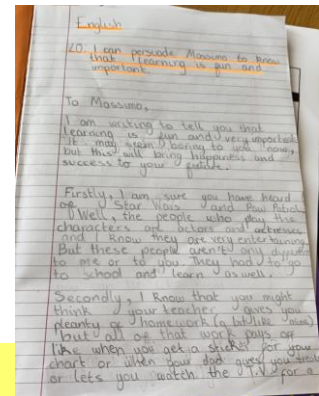 English
LO: I can persuade Massimo to know
that learning is fun and
important.
To Massimo,
I am writing to tell you that
learning is fun and very important.
It may seem boring to you now,
but this will bring happiness and
success to your future.
Firstly, I am sure you have heard
of Star Wars and Paw Patrol.
Well, the people who play the
characters are actors and actresses
and I know they are very entertaining.
But these people aren't any different
to me or to you. They had to go
to school and learn as well.
Secondly, I know that you might
think your teacher gives you
pleanty of homework (a lot like mine)
but all of that work pays off
like when you get a sticker for your
chart or when your dad gives you
or lets you watch the T.V for a